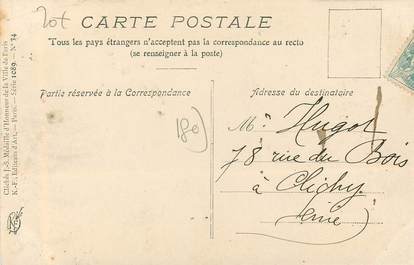 CARTE POSTALE
Tous les pays étrangers n'acceptent pas la correspondance au recto
(se renseigner à la poste)
Partie réservée à la Correspondance
Adresse du destinataire
Mr Hugot
78 rue du Bois
à Clichy
Seine)
180
Clichés J.-S. Médaille d'Honneur de la Ville de Paris
K.-F., Editeurs d'Art, — Paris. — Série 1089. — N° 34